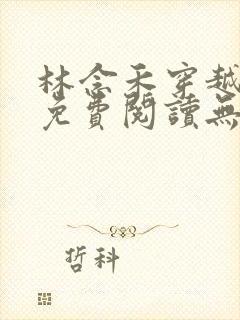 林念禾穿越
免費閱讀無
哲科